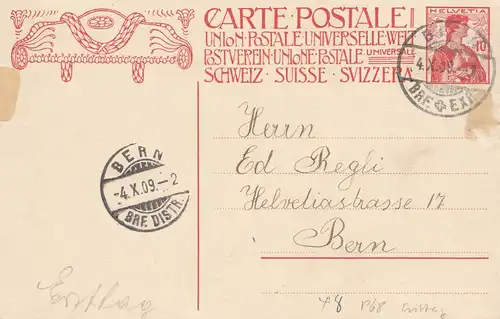 CARTE POSTALE
UNION POSTALE UNIVERSELLE·WELT
POSTVEREIN·UNIONE·POSTALE UNIVERSALE
SCHWEIZ · SUISSE · SVIZZERA
HELVETIA
10
4.X.09
BRF. EXP.
BERN
-4.X.09.-2
BRF. DISTR.
Herrn
Ed Regli
Helvetiastrasse 17
Bern
Ersttag
P68 Ersttag